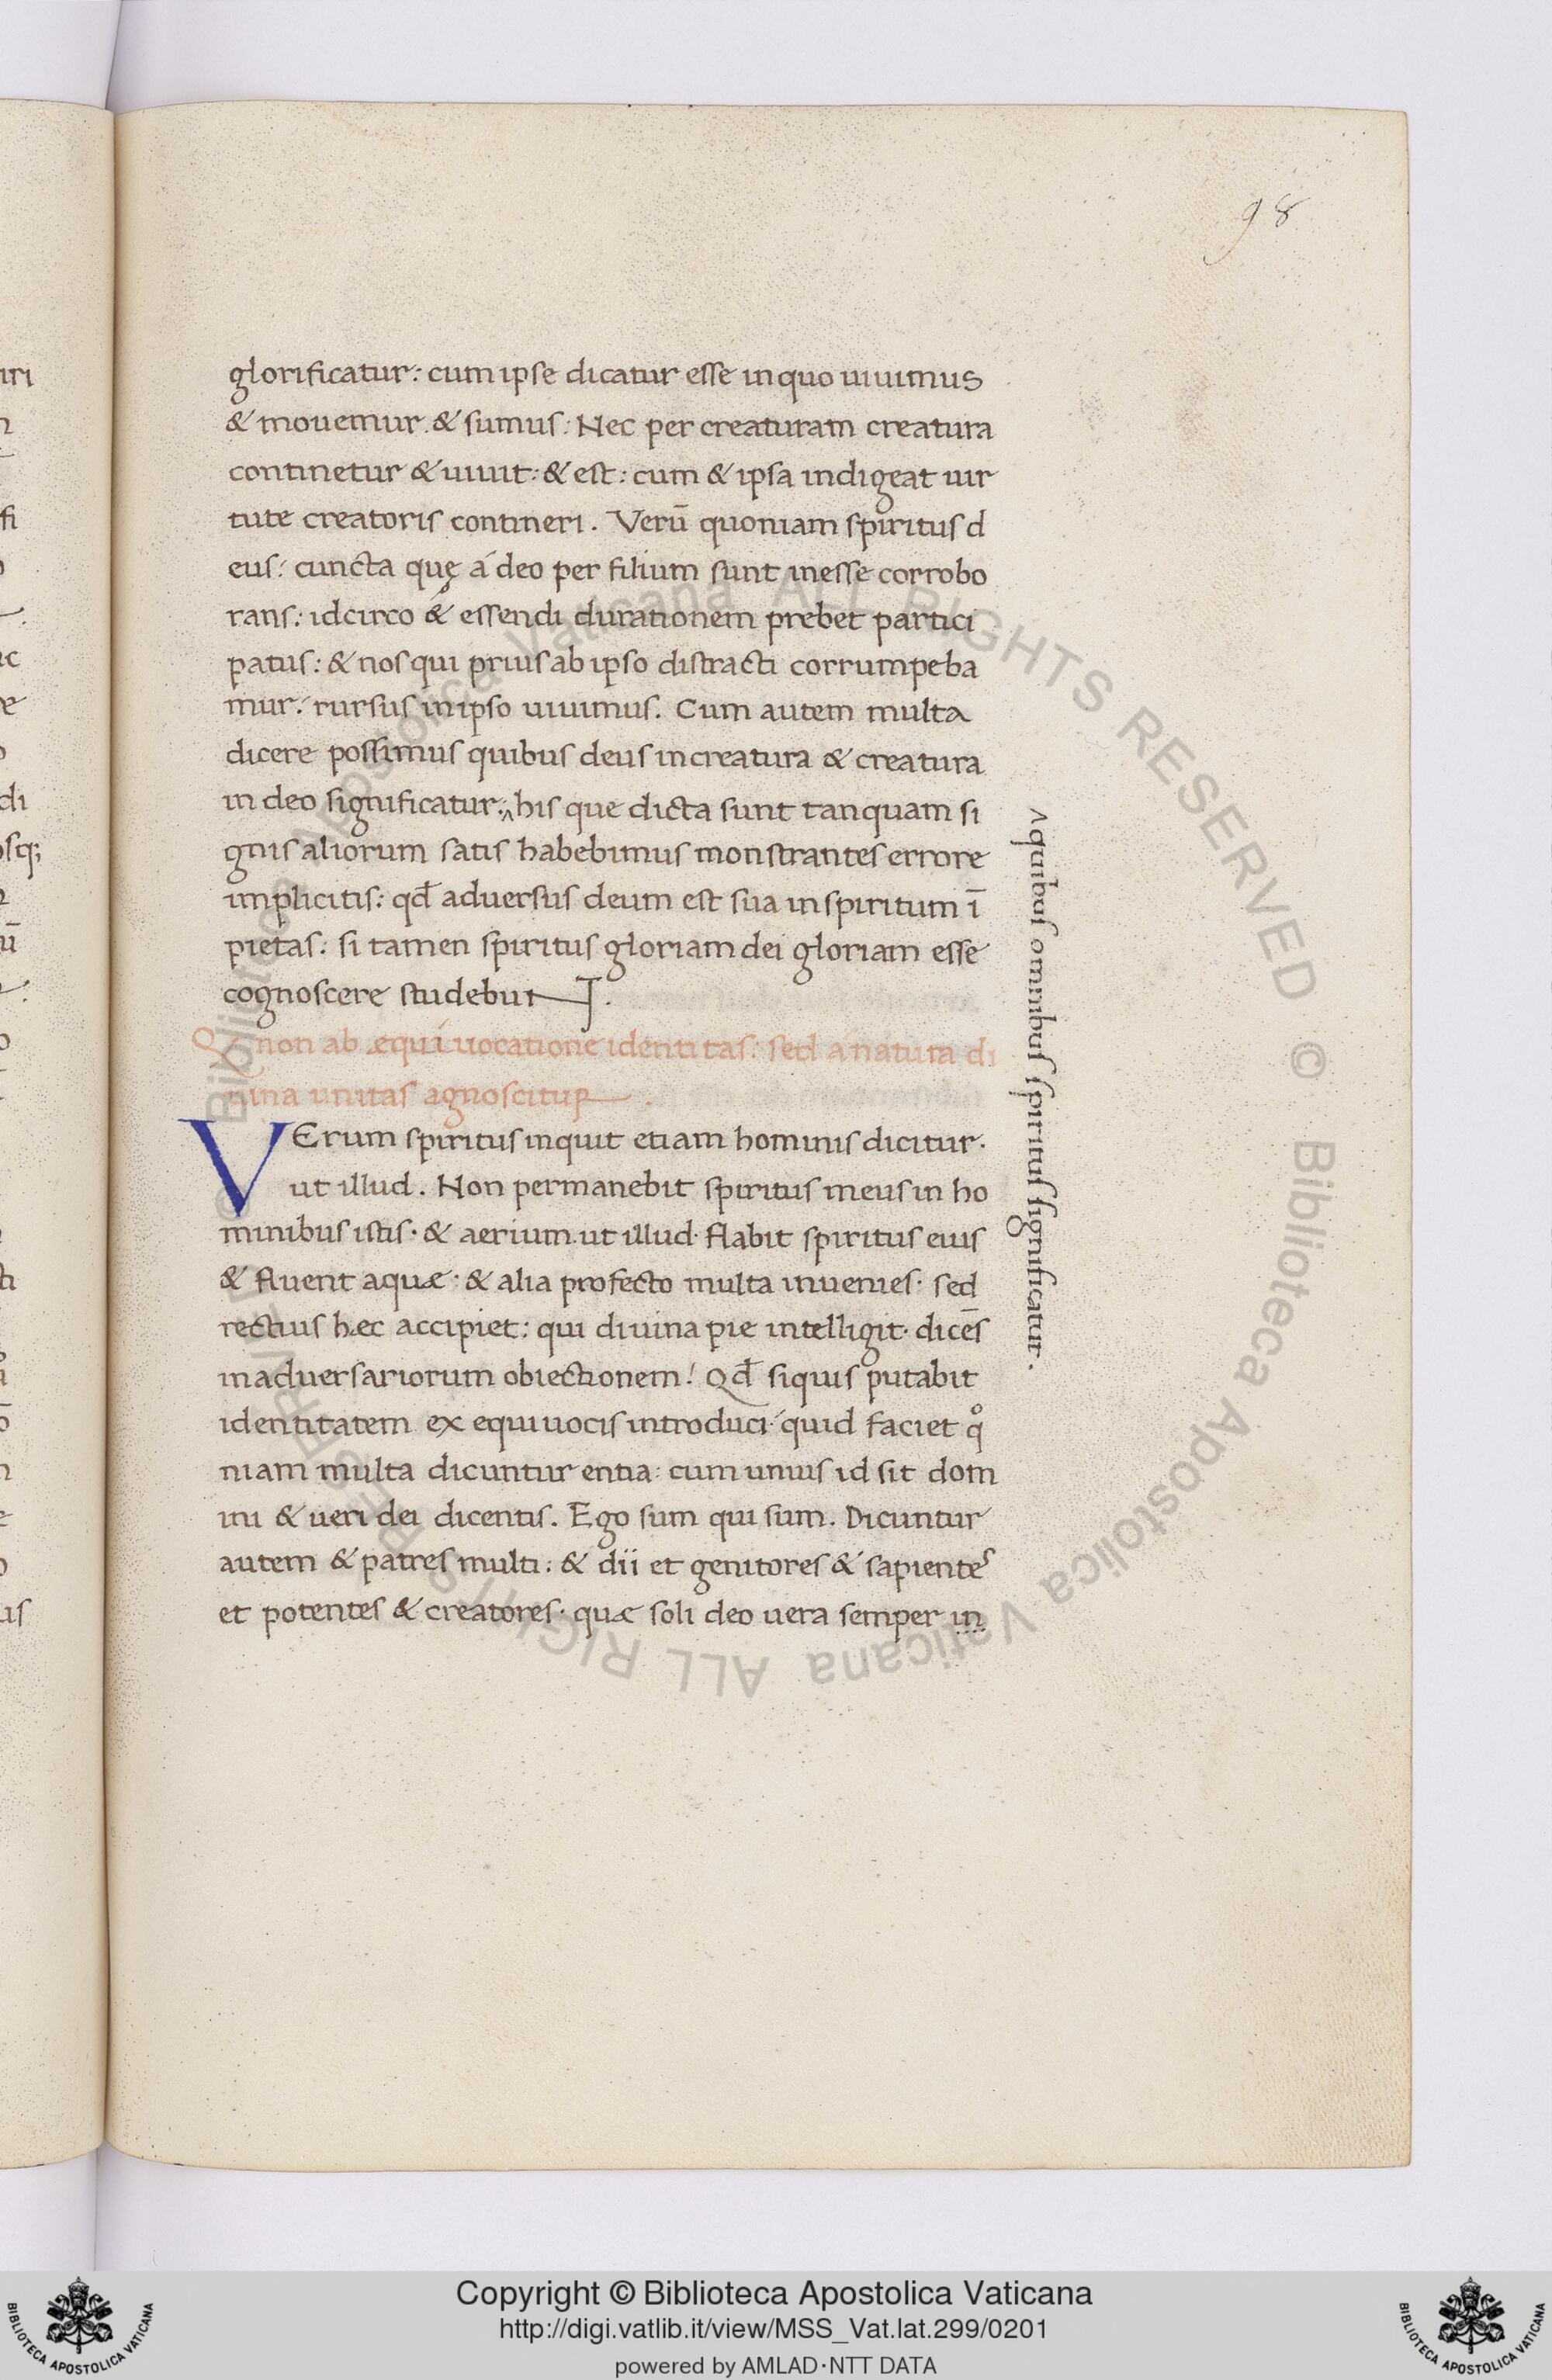 98
glorificatur: cum ipse dicatur esse in quo uiuimus
& mouemur. & sumus: Nec per creaturam creatura
continetur & uiuit: & est: cum & ipsa indigeat uir
tute creatoris contineri. Verū quoniam spiritus d
eus: cuncta quę á deo per filium sunt inesse corrobo
rans: idcirco & essendi durationem prebet partici
patus: & nos qui prius ab ipso distracti corrumpeba
mur: rursus in ipso uiuimus. Cum autem multa
dicere possimus quibus deus in creatura & creatura
in deo significatur:^ his que dicta sunt tanquam si
gnis aliorum satis habebimus monstrantes errore
implicitis: qd̄ aduersus deum est sua in spiritum ī
pietas: si tamen spiritus gloriam dei gloriam esse
cognoscere studebunt.
^ quibus omnibus spiritus significatur.
Q non ab æquiuocatione identitas: sed a natura di
uina unitas agnoscitur.
VErum spiritus inquit etiam hominis dicitur.
ut illud. Non permanebit spiritus meus in ho
minibus istis. & aerium. ut illud. flabit spiritus eius
& fluent aquæ: & alia profecto multa inuenies. sed
rectius hæc accipiet: qui diuina pie intelligit. dicēs
in aduersariorum obiectionem! Qd̄ siquis putabit
identitatem ex equiuocis introduci. quid faciet qͦ
niam multa dicuntur entia: cum unius id sit dom
ini & ueri dei dicentis. Ego sum qui sum. Dicuntur
autem & patres multi: & dii et genitores & sapientes
et potentes & creatores. quæ soli deo uera semper in
Copyright © Biblioteca Apostolica Vaticana
http://digi.vatlib.it/view/MSS_Vat.lat.299/0201
powered by AMLAD·NTT DATA